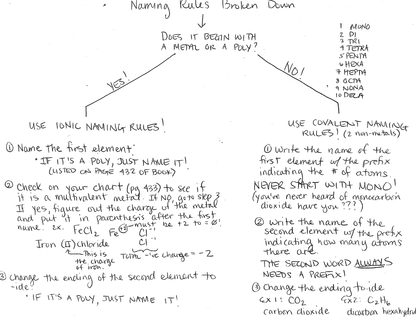 Naming Rules Broken Down
DOES IT BEGIN WITH
A METAL OR A POLY?
1 MONO
2 DI
3 TRI
4 TETRA
5 PENTA
6 HEXA
7 HEPTA
8 OCTA
9 NONA
10 DECA
YES!
NO!
USE IONIC NAMING RULES!
① Name the first element
* IF IT'S A POLY, JUST NAME IT!
(LISTED ON PAGE 432 OF BOOK)
② Check on your chart (pg 433) to see if
it is a multivalent metal. If NO, go to step 3
If yes, figure out the charge of the metal
and put it in parenthesis after the first
name. ex. FeCl2 Fe must be +2 to = 0!
Cl-
Cl-
Iron (II) Chloride
This is
the charge
of iron.
TOTAL -ve charge = -2
③ Change the ending of the second element to
-ide
* IF IT'S A POLY, JUST NAME IT!
USE COVALENT NAMING
RULES! (2 non-metals)
① Write the name of the
first element w/ the prefix
indicating the # of atoms.
NEVER START WITH MONO!
(you've never heard of monocarbon
dioxide have you???)
② Write the name of the
second element w/ the prefix
indicating how many atoms
there are.
THE SECOND WORD ALWAYS
NEEDS A PREFIX!
③ Change the ending to ide
ex 1: CO2 ex2: C2H6
carbon dioxide dicarbon hexahydride